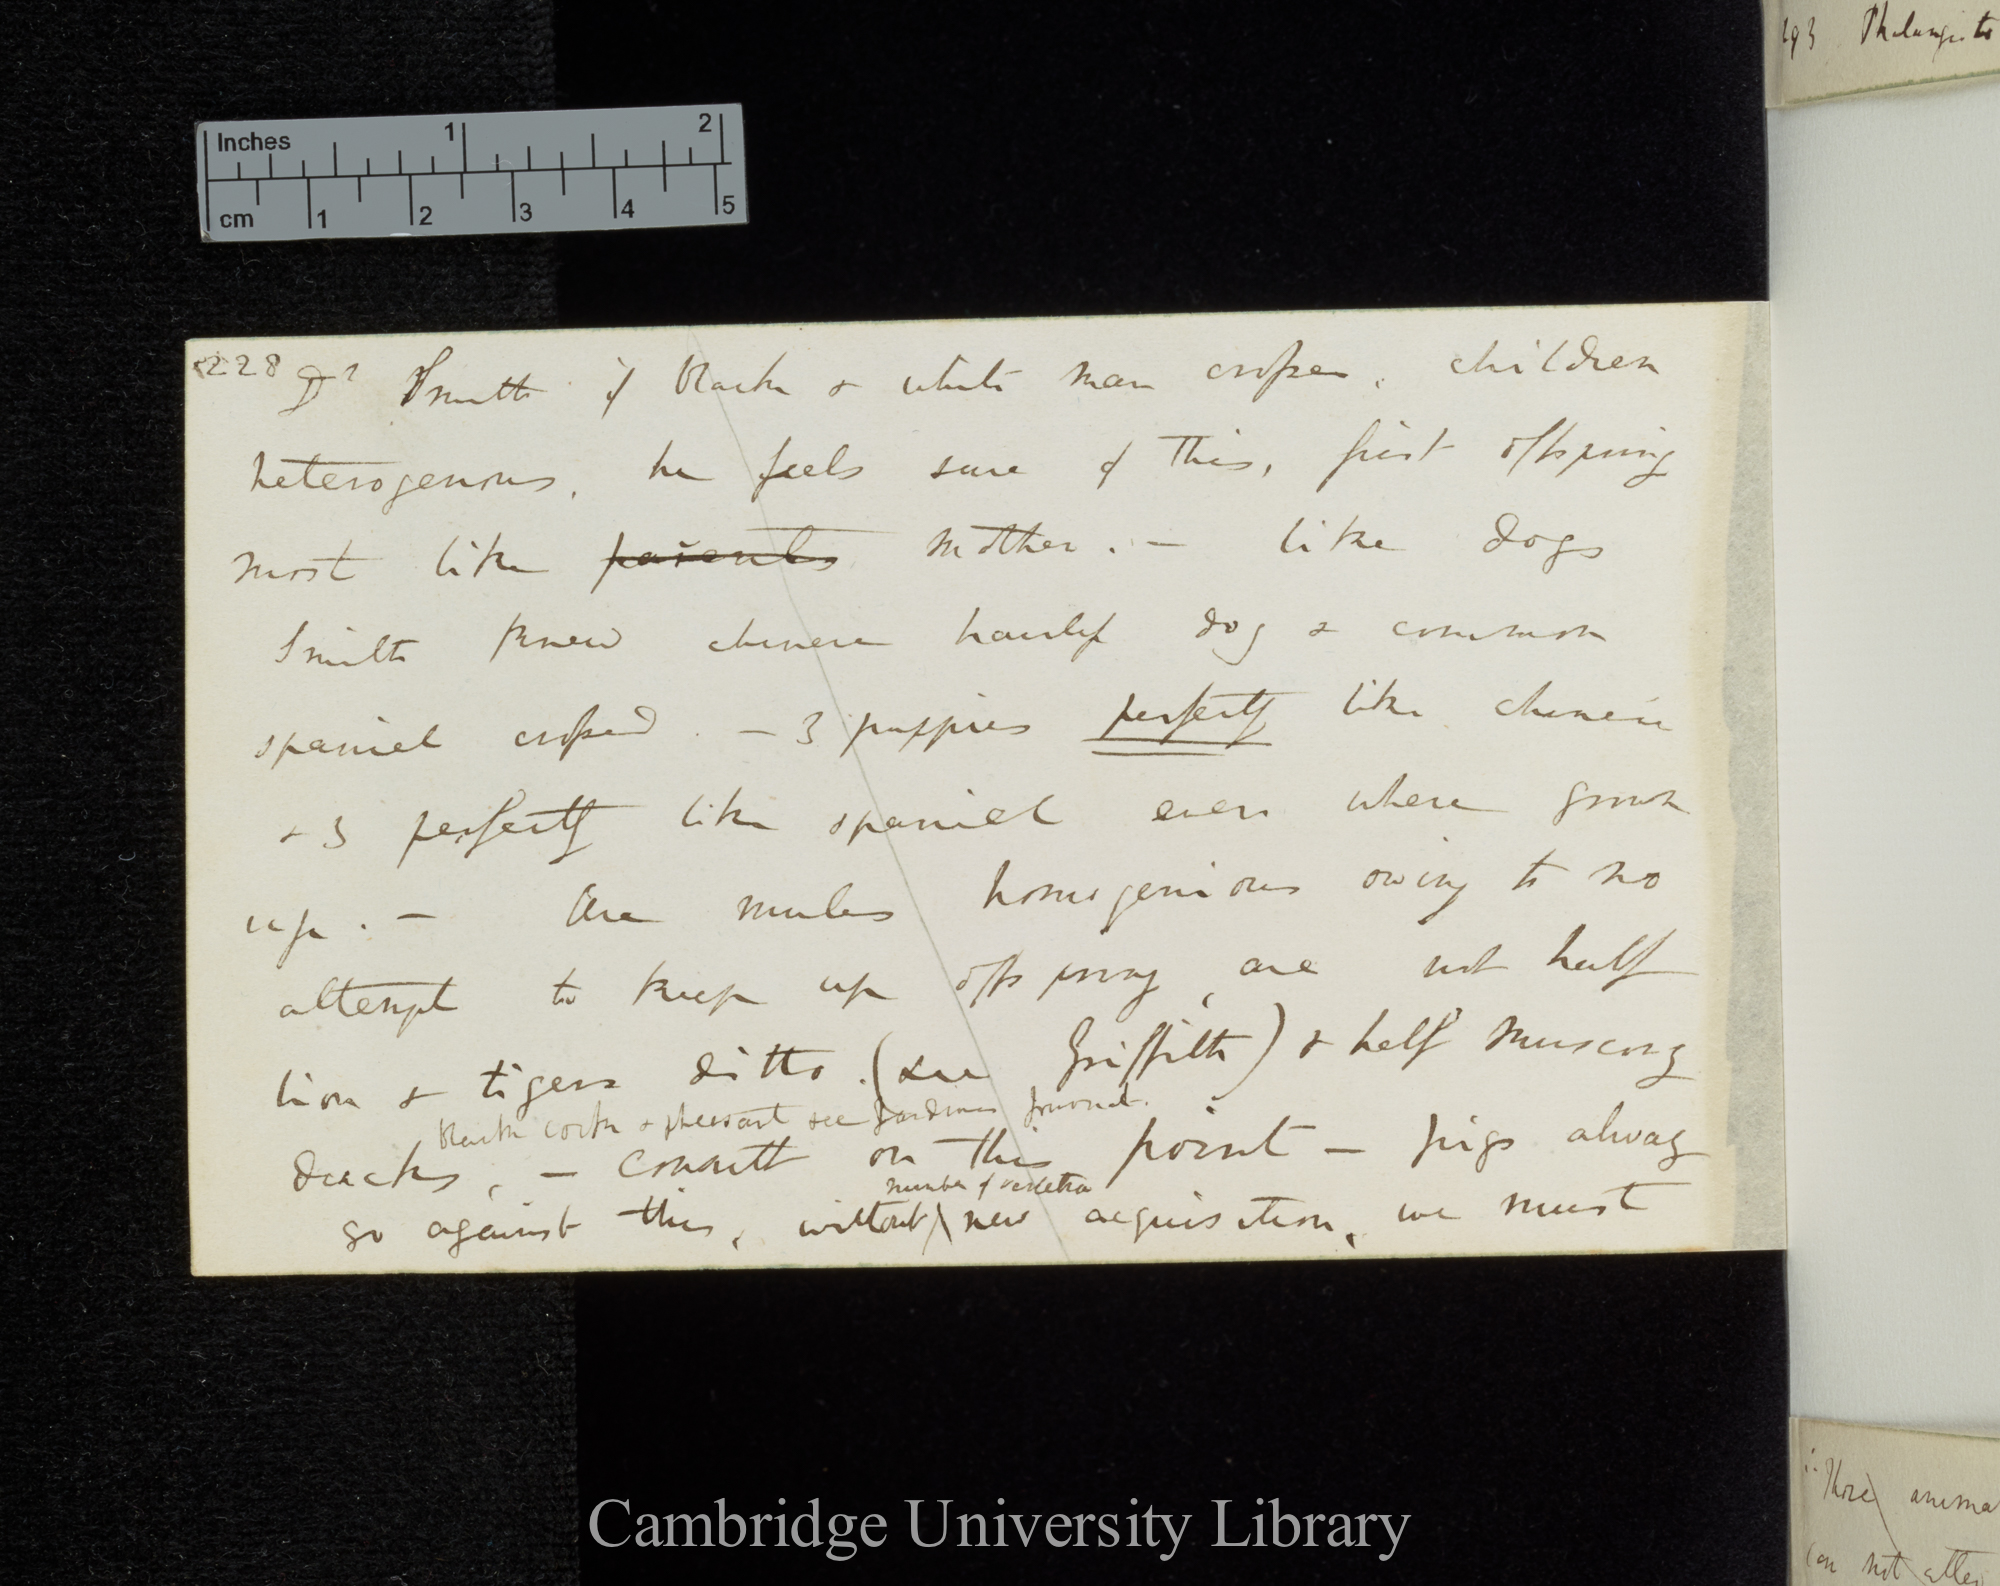 Inches 1 2
cm 1 2 3 4 5
193 Phalangista
228 Dr Smith if black & white man crosses, children
heterogenous, he feels sure of this, first offspring
most like parents mother. — like dogs
Smith knew chinese hairless dog & common
spaniel crossed. — 3 puppies perfectly like chinese
& 3 perfectly like spaniel even where grown
up. — Are mules homogenious owing to no
attempt to keep up offspring, are not half
lion & tigers ditto. (see Griffith) & half muscovy
black cock & pheasant see Gardiners journal.
ducks, — consult on this point — pigs always
number of vertebræ
go against this, without new acquisition, we must
Those anima
can not alter
Cambridge University Library